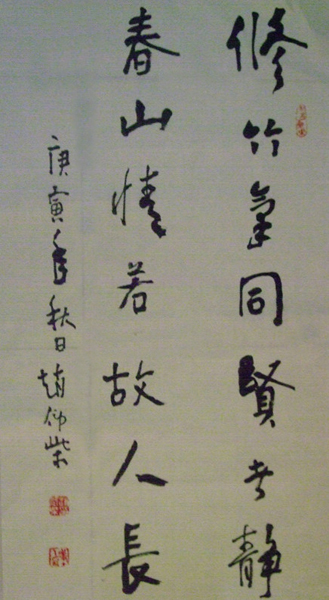 修竹氣同賢者靜
春山情若故人長
庚寅年秋日趙柴